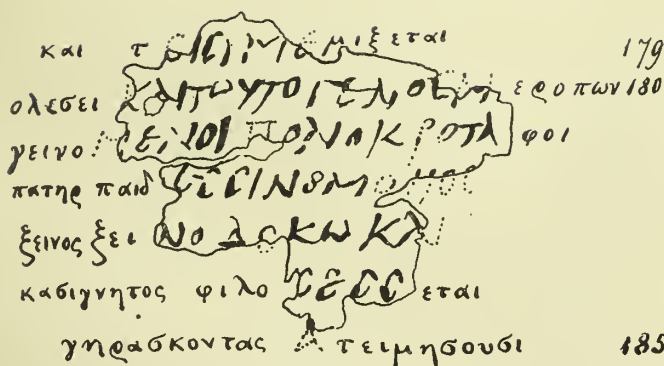 και τΟΙCΙΜΕμιξεται 179
ολεσει ΚΑΙΤΟΥΤΟΓΕΝΟCΜεροπων 180
γεινοΜΕΝΟΙ ΠΟΛΙΟΚΡΟΤΑφοι
πατηρ παιδΕCCΙΝΟΜΟΙ
ξεινος ξειΝΟΔΟΚΩ ΚΑΙ
κασιγνητος φιλοC ΕCCεται
γηρασκοντας Ατειμησουσι 185